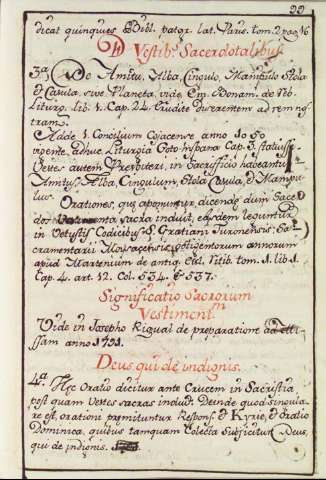 99
dicat quinquies Bibl. patr. lat. Paris. tom. 2 pag. 16
Vestib. Sacerdotalibus.
3ª De Amitu, Alba, Cingulo, Manipulo Stola
& Casula, sive Planeta, vide Em. Bonam. de reb.
Liturg. lib. 1. Cap. 24. erudite disserentem ad rem nos
tram.
Adde 1. Concilium Cojacense anno 1050
vigente adhuc Liturgia Goto hispana Cap. 3. statuisse
Vestes autem Presbiteri, in Sacrificio habeantur
Amitus, Alba, Cingulum, Stola Casula, & Manipu
lus.
Orationes, quæ apponuntur, dicendæ dum Sace
dos sacra induit, eædem leguntur
in Vetustis Codicibus S. Gratiani Turonensis: Sa
cramentarii Moisacensis octigentorum annorum
apud Martenium de antiq. Ritib. tom. 1. lib. 1.
Cap. 4. art. 12. Col. 534. & 537.
Significatio Sacrorum
Vestiment.
Vide in Josepho Rigual de preparatione ad Mi
ssam anno 1791.
Deus, qui de indignis.
4ª. Hæc Oratio dicitur ante Crucem in Sacristia
post quam Vestes sacras induit. Deinde quod singula
re est, orationi præmituntur Respons. & Kyrie, & Oratio
Dominica, quibus tamquam Colecta Subjicitur Deus,
qui de indignis.